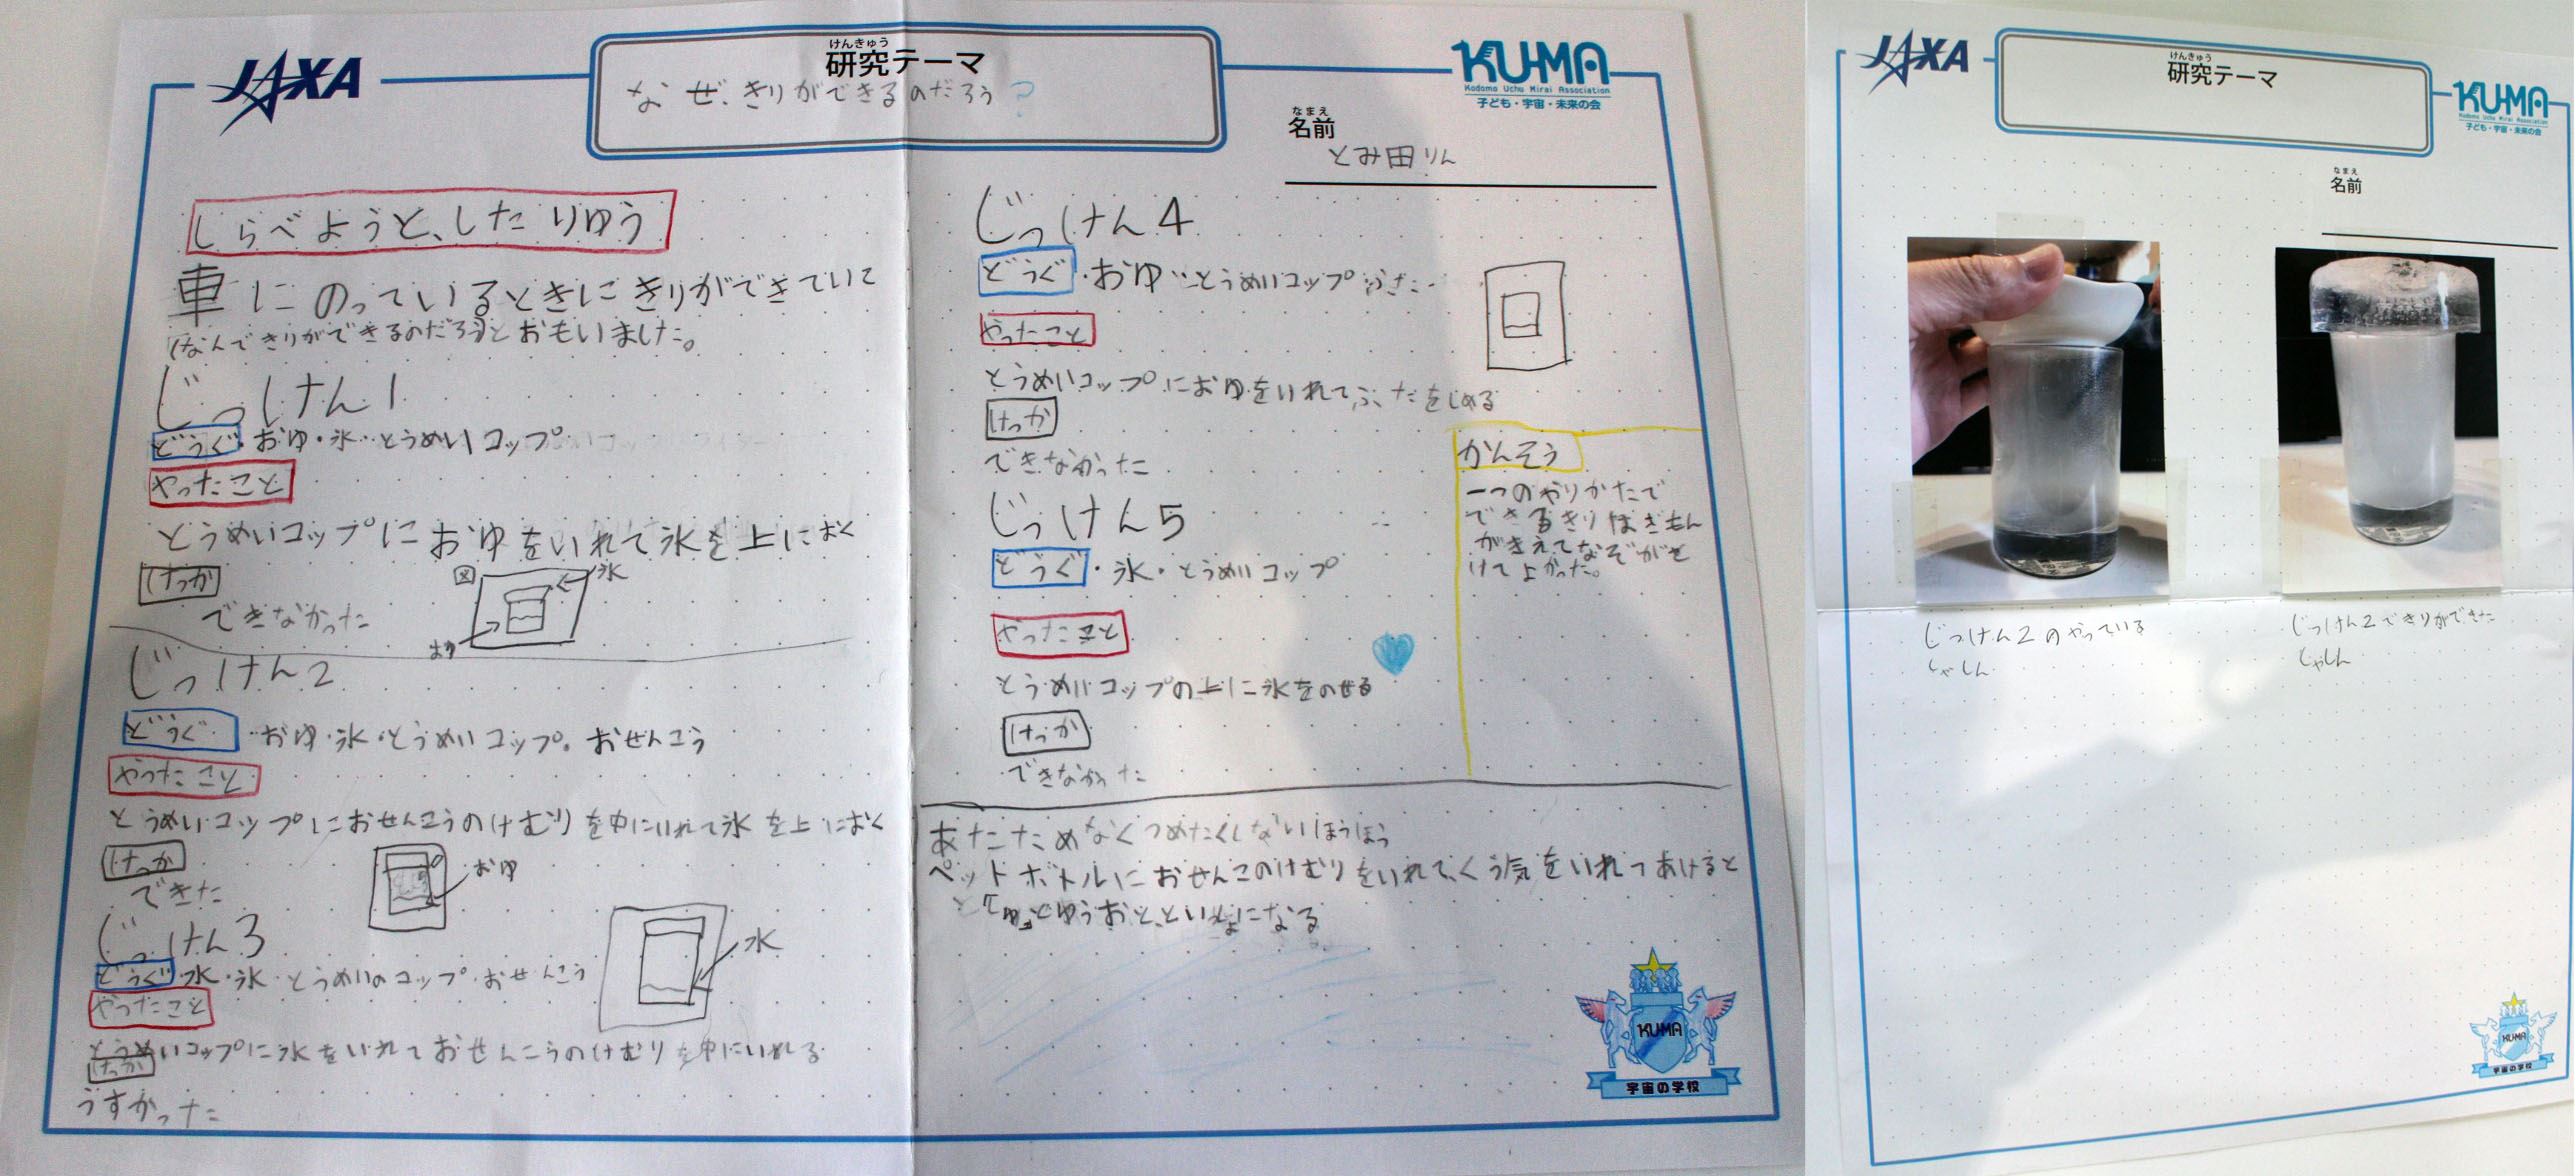 JAXA
けんきゅう
研究テーマ
なぜ、きりができるのだろう?
KU-MA
Kodomo Uchu Mirai Association
子ども・宇宙・未来の会
なまえ
名前
とみ田りん
しらべようと、したりゆう
車にのっているときにきりができていて
(なんできりができるのだろう)とおもいました。
じっけん1
どうぐ・おゆ・氷・とうめいコップ
やったこと
とうめいコップにおゆをいれて氷を上におく
けっか
図
氷
できなかった
おゆ
じっけん2
どうぐ・おゆ・氷・とうめいコップ。おせんこう
やったこと
とうめいコップにおせんこうのけむりを中にいれて氷を上におく
けっか
おゆ
できた
じっけん3
水
どうぐ・水・氷・とうめいのコップ・おせんこう
やったこと
とうめいコップに氷をいれておせんこうのけむりを中にいれる
けっか
うすかった
じっけん4
どうぐ・おゆ・とうめいコップふた
やったこと
とうめいコップにおゆをいれてふたをしめる
けっか
できなかった
じっけん5
どうぐ・氷・とうめいコップ
やったこと
とうめいコップの上に氷をのせる
けっか
できなかった
かんそう
一つのやりかたで
できるきりはぎもん
がきえてなぞがと
けてよかった。
あたためなくつめたくしないほうほう
ペットボトルにおせんこのけむりをいれて、くう気をいれてあけると
とゆうおと、といっしょになる
KUMA
宇宙の学校
JAXA
けんきゅう
研究テーマ
KU-MA
Kodomo Uchu Mirai Association
子ども・宇宙・未来の会
なまえ
名前
じっけん2のやっている
しゃしん
じっけん2できりができた
しゃしん
KUMA
宇宙の学校